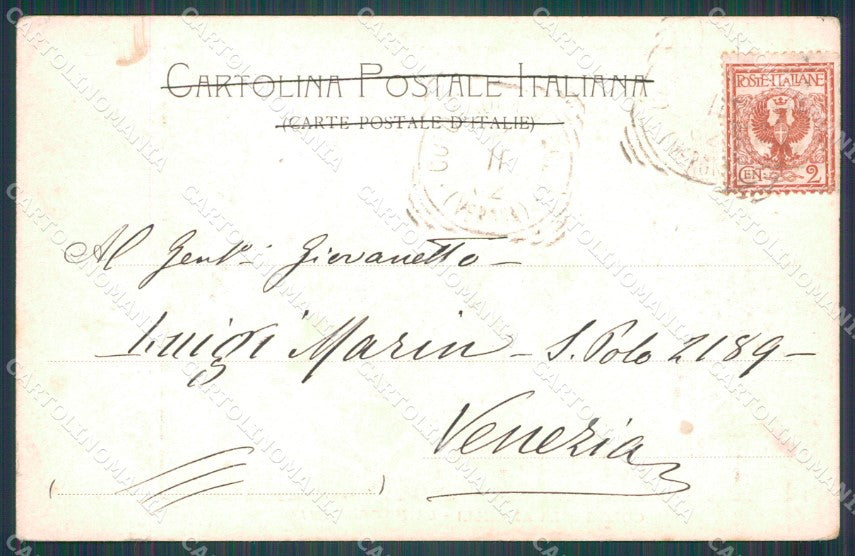 CARTOLINA POSTALE ITALIANA
(CARTE POSTALE D'ITALIE)
POSTE·ITALIANE
CEN. 2
11
Al Gent.º Giovanetto -
Luigi Marin - S. Polo 2189 -
Venezia
( )
CARTOLINOMANIA